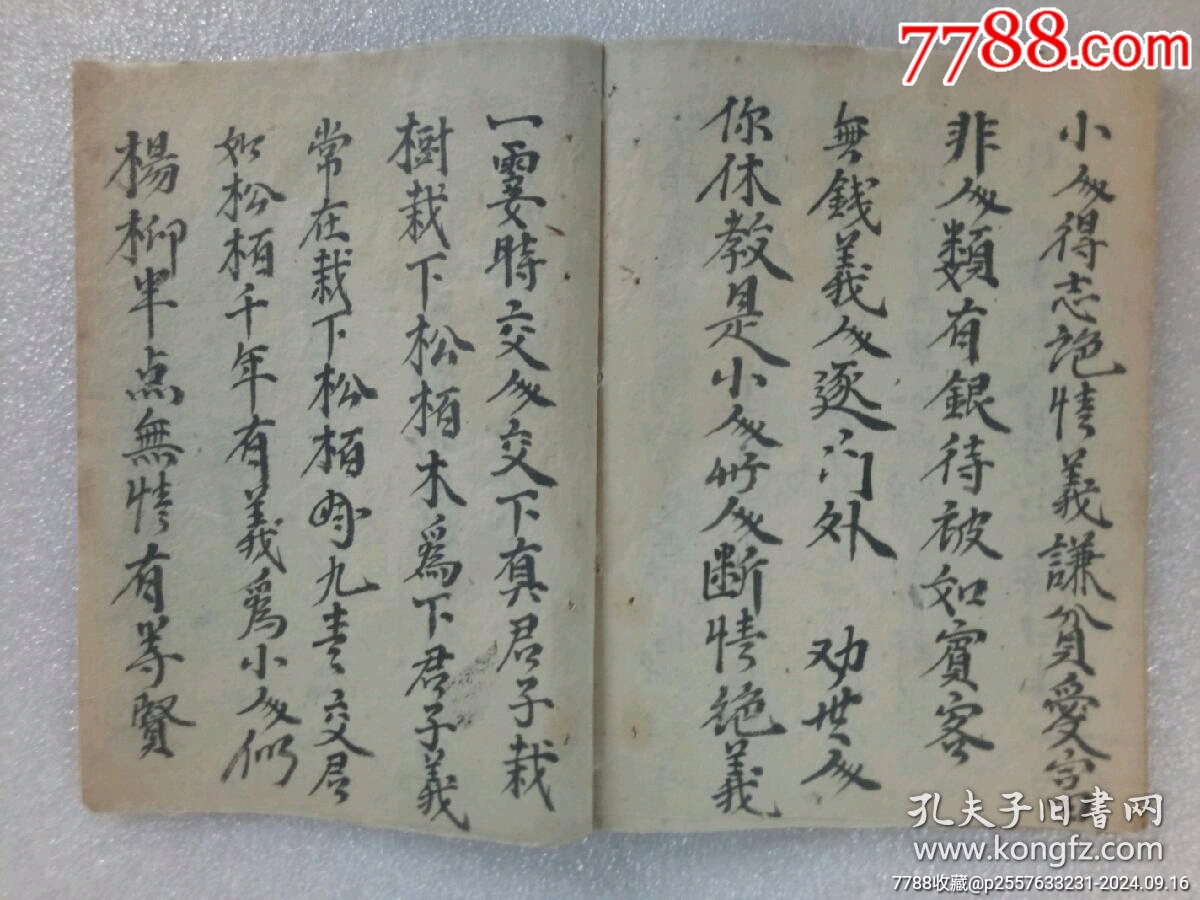 7788.com
小人得志絶情義謙貧愛富
非人類有銀待被如賓客
無錢義人逐门外 劝世人
你休教是小人竹人断情絶義
一霎時交人交下真君子栽
樹栽下松栢木為下君子義
常在栽下松栢冬青交君
如松栢千年有義為小人們
楊柳半点無情有等賢
孔夫子旧書网
www.kongfz.com
7788收藏@p2557633231-2024.09.16